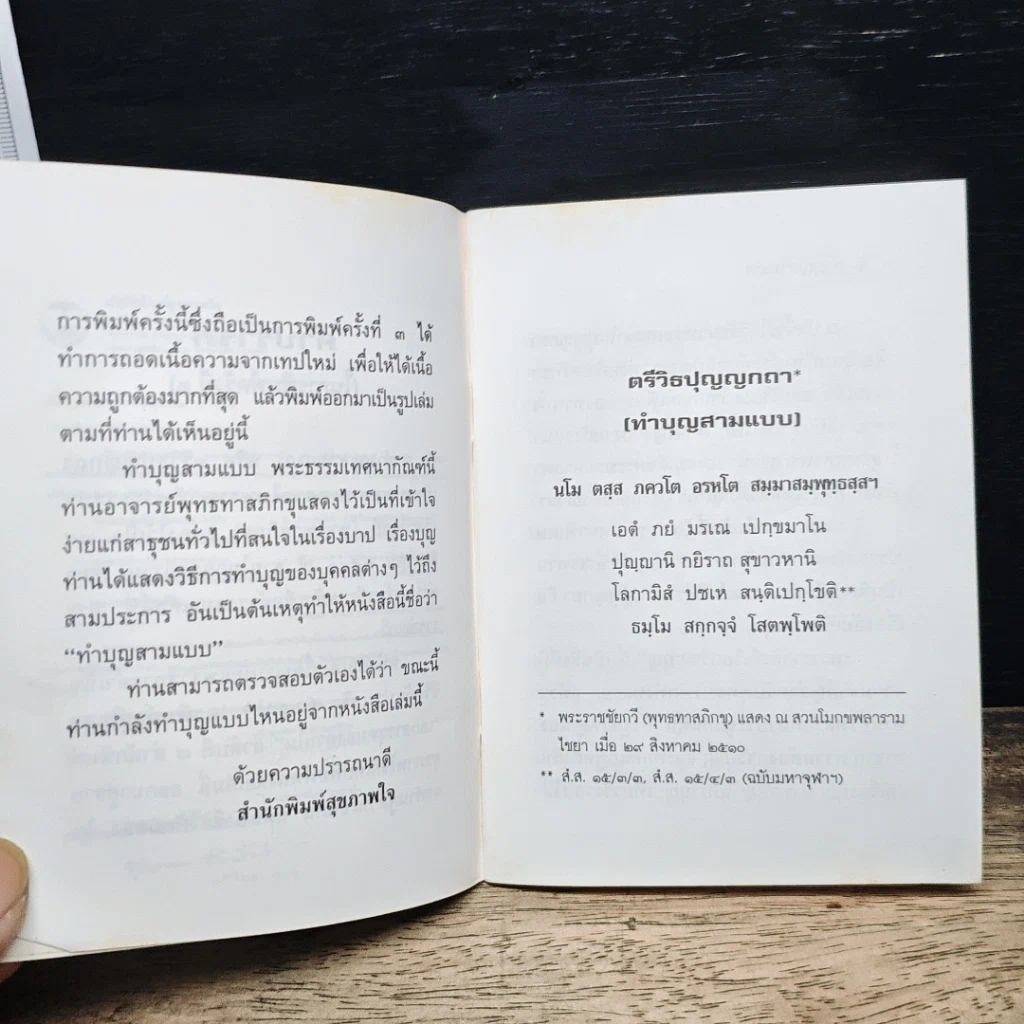 การพิมพ์ครั้งนี้ซึ่งถือเป็นการพิมพ์ครั้งที่ ๓ ได้
ทำการถอดเนื้อความจากเทปใหม่ เพื่อให้ได้เนื้อ
ความถูกต้องมากที่สุด แล้วพิมพ์ออกมาเป็นรูปเล่ม
ตามที่ท่านได้เห็นอยู่นี้
ทำบุญสามแบบ พระธรรมเทศนากัณฑ์นี้
ท่านอาจารย์พุทธทาสภิกขุแสดงไว้เป็นที่เข้าใจ
ง่ายแก่สาธุชนทั่วไปที่สนใจในเรื่องบาป เรื่องบุญ
ท่านได้แสดงวิธีการทำบุญของบุคคลต่างๆ ไว้ถึง
สามประการ อันเป็นต้นเหตุทำให้หนังสือนี้ชื่อว่า
“ทำบุญสามแบบ”
ท่านสามารถตรวจสอบตัวเองได้ว่า ขณะนี้
ท่านกำลังทำบุญแบบไหนอยู่จากหนังสือเล่มนี้
ด้วยความปรารถนาดี
สำนักพิมพ์สุขภาพใจ
ตรีวิธปุญญกถา*
(ทำบุญสามแบบ)
นโม ตสฺส ภควโต อรหโต สมฺมาสมฺพุทฺธสฺสฯ
เอตํ ภยํ มรเณ เปกฺขมาโน
ปุญฺญานิ กยิราถ สุขาวหานิ
โลกามิสํ ปชเห สนฺติเปกฺโขติ**
ธมฺโม สกฺกจฺจํ โสตพฺโพติ
* พระราชชัยกวี (พุทธทาสภิกขุ) แสดง ณ สวนโมกขพลาราม
ไชยา เมื่อ ๒๙ สิงหาคม ๒๕๑๐
** สํ.ส. ๑๕/๓/๓, สํ.ส. ๑๕/๔/๓ (ฉบับมหาจุฬาฯ)